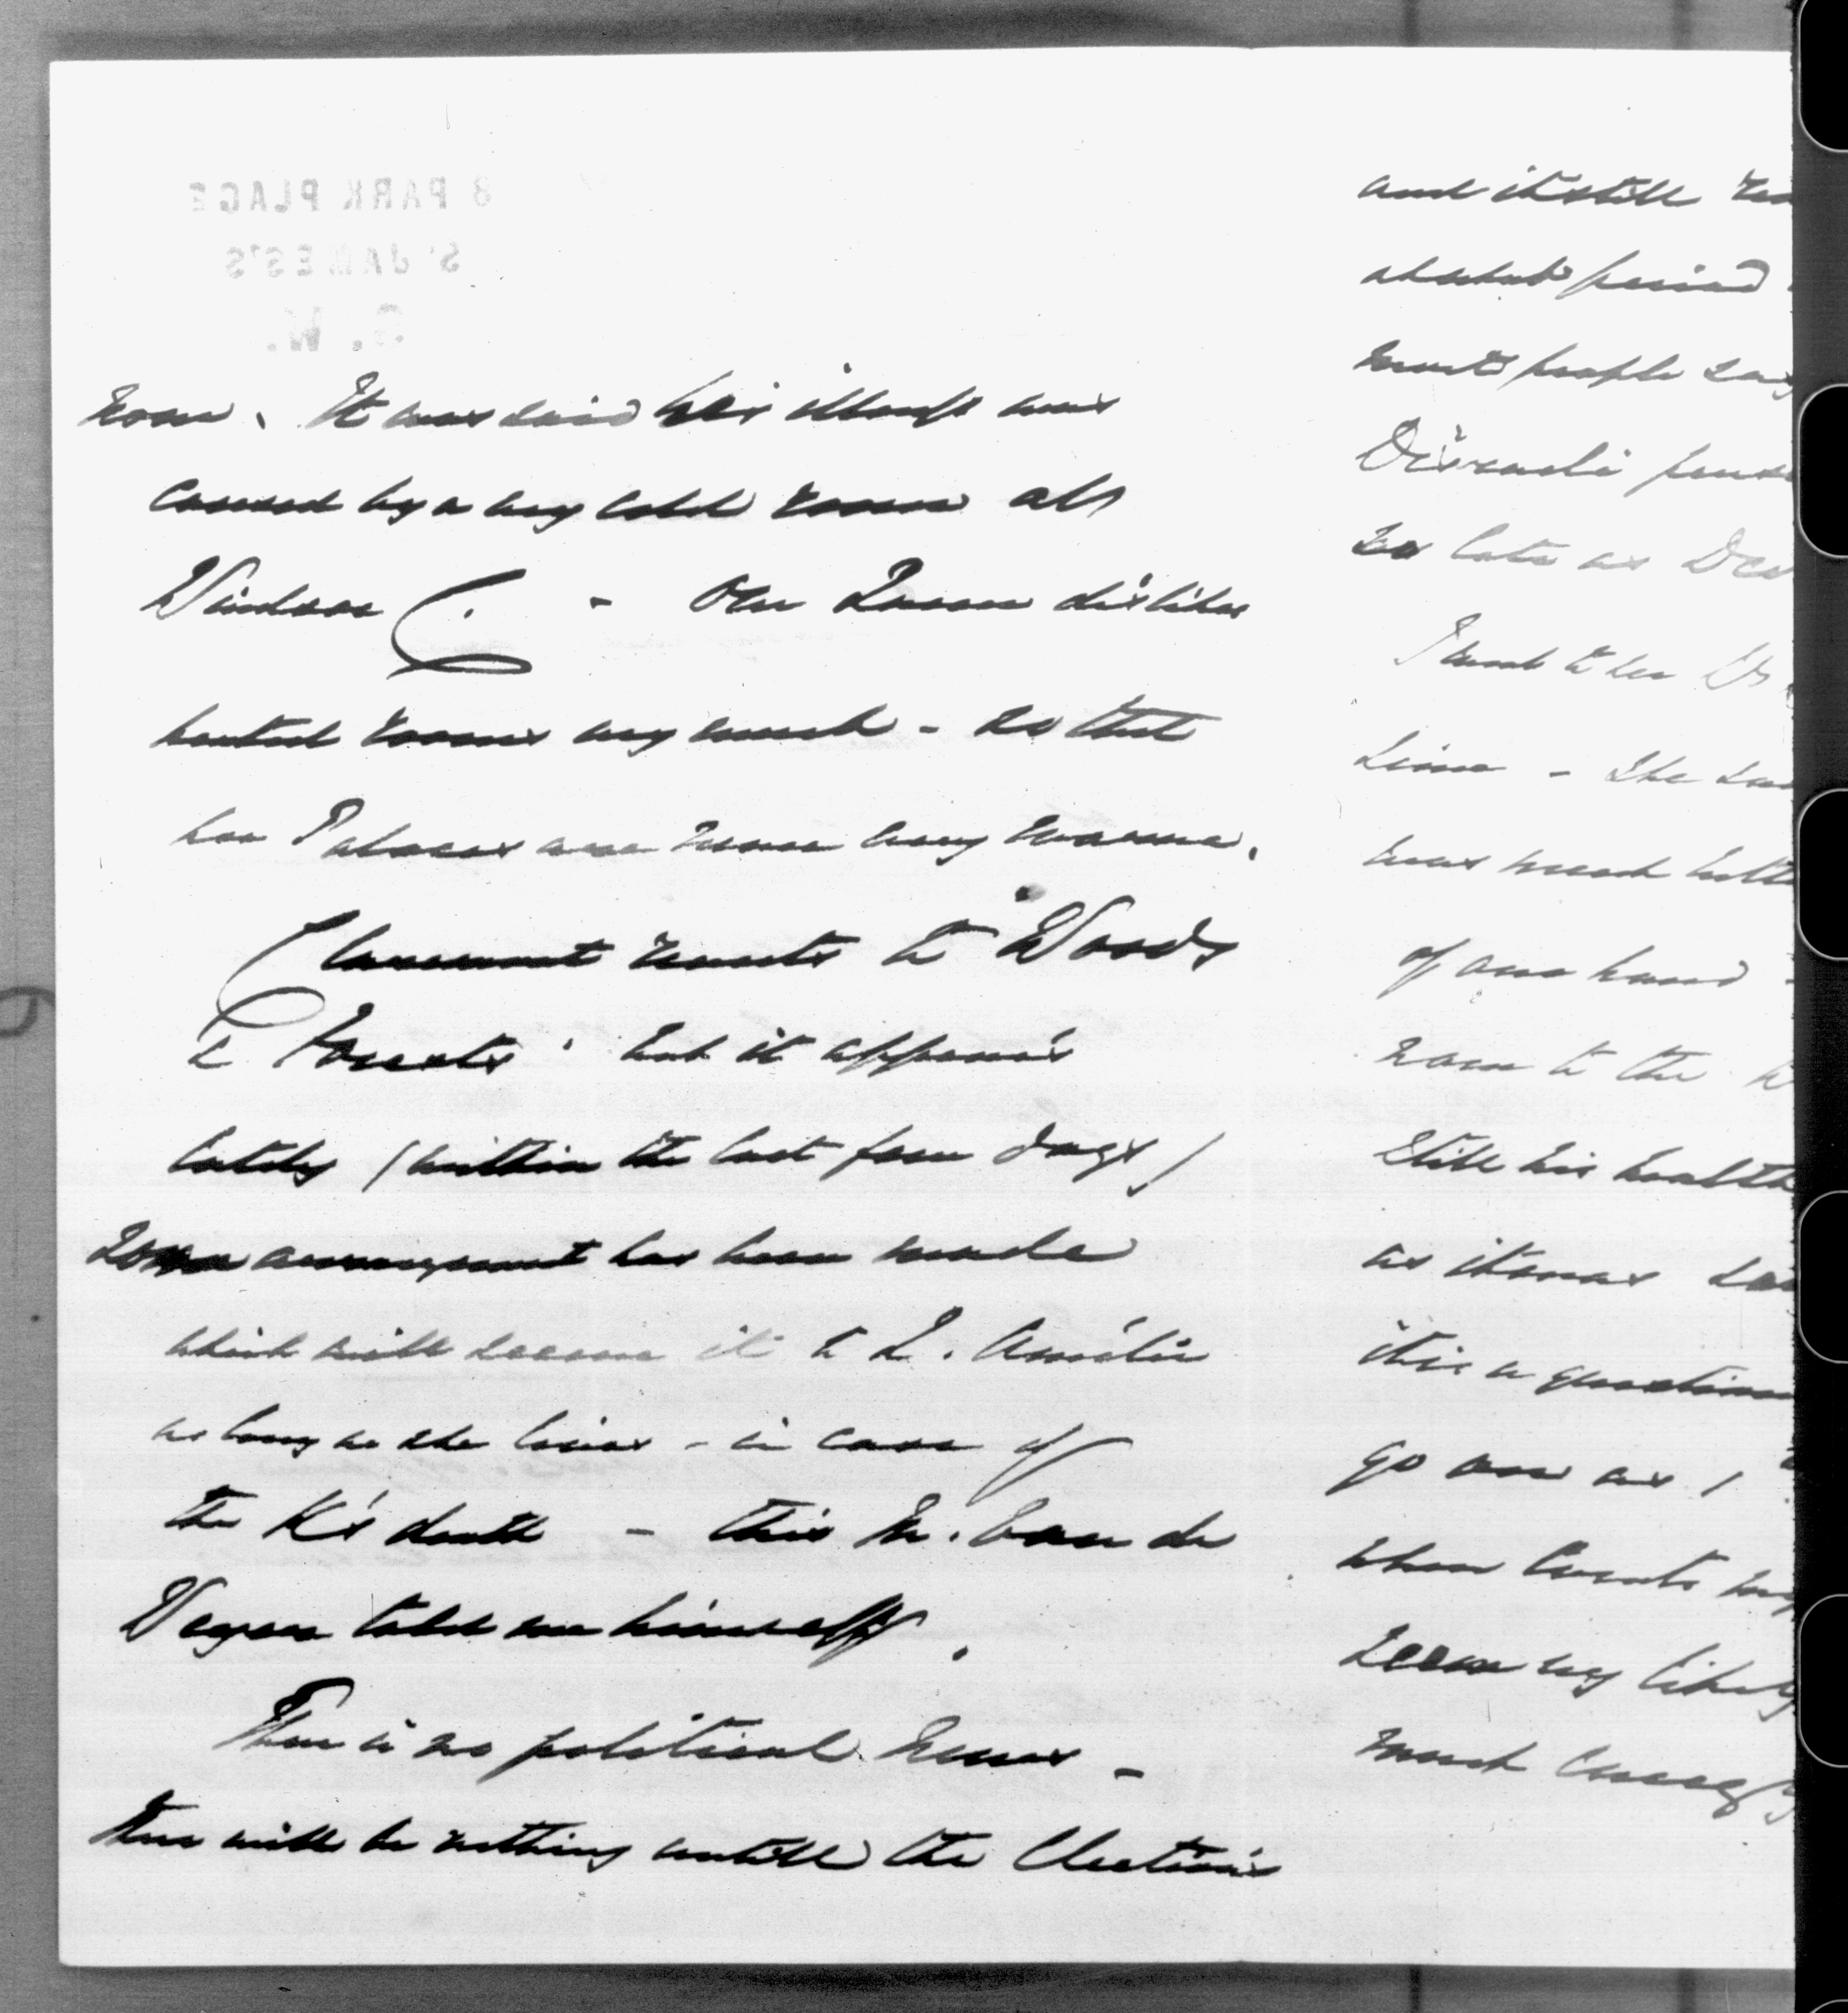 8 PARK PLACE
ST JAMES'S
S. W.
now. It was said his illness was
caused by a very cold room at
Windsor (. - Our Queen dislikes
heated rooms very much - so that
her Palaces are never very warm.
Claremont reverts to "Woods
& Forests" but it appears
lately (within the last few days)
some arrangement has been made
which will secure it to Q. Amélie
as long as she lives - in case of
the K's death - this M. Van de
Weyer told me himself.
There is no political news -
there will be nothing untill the Elections
and it still
period
most people say
Disraeli
so late as Dec
I went to see Ld
- She
was much bette
of one hand -
room to the
Still his health
as it was
it is a question
go
when Events
seem very likely
much